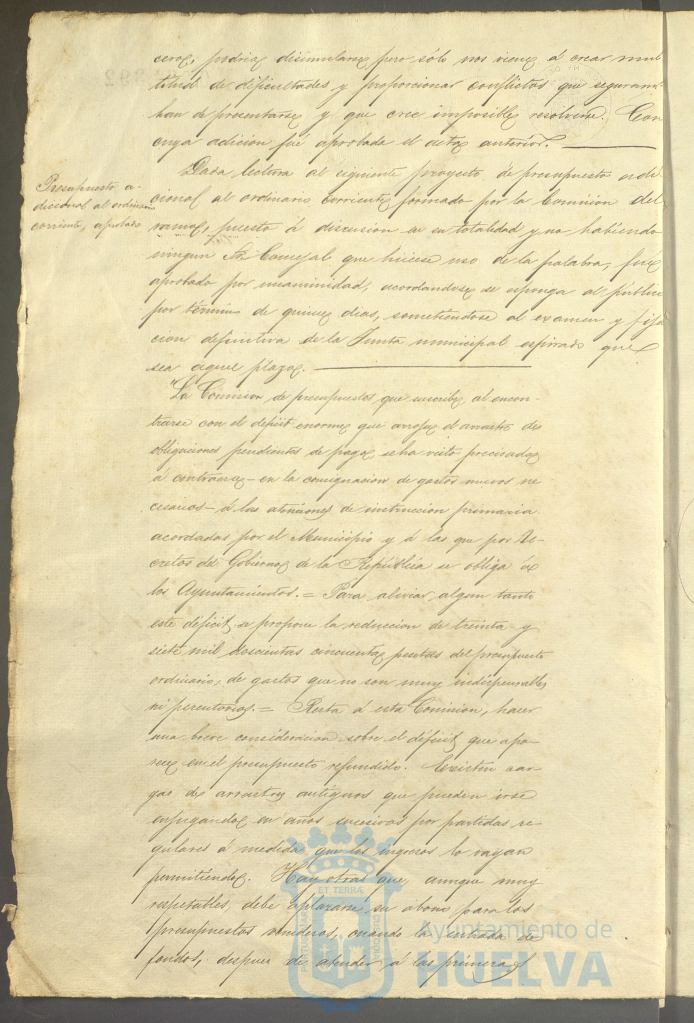 ceros, podria disimularse pero sólo nos viene á crear mul
titud de dificultades y proporcionar conflictos que seguram.
han de presentarse y que cree imposible resolverse. Con
cuya adicion fué aprobada el acta anterior.
Presupuesto a-
dicional al ordinario
corriente, aprobado
Dada lectura al siguiente proyecto de presupuesto adi
cional al ordinario corriente formado por la Comision del
ramo, puesto á discusion en su totalidad y no habiendo
ningun Sr. Concejal que hiciese uso de la palabra, fué
aprobado por unanimidad, acordandose se esponga al público
por término de quince dias, sometiendose al examen y fija
cion definitiva de la Junta municipal espirado que
sea aquel plazo.
La Comision de presupuestos que suscribe, al encon-
trarse con el deficit enorme que arroja el arrastre de
obligaciones pendientes de pago se ha visto precisada
á contraerse - en la consignacion de gastos nuevos ne
cesarios - á las atenciones de instruccion primaria
acordadas por el Municipio y á las que por De-
cretos del Gobierno de la República se obliga á
los Ayuntamientos. = Para aliviar algun tanto
este déficit se propone la reduccion de treinta y
siete mil doscientas cincuenta pesetas del presupuesto
ordinario, de gastos que no son muy indispensables
ni perentorios. = Resta á esta Comision, hacer
una breve consideracion sobre el déficit que apa-
rece en el presupuesto refundido. Existen car-
gas de arrastres antiguos que pueden irse
enjugandose en años sucesivos por partidas re-
gulares á medida que los ingresos lo vayan
permitiendo. Hay otras que aunque muy
respetables, debe aplazarse su abono para los
presupuestos venideros, cuando la entrada de
fondos, despues de atender á las primeras
ET TERRÆ
Ayuntamiento de
HUELVA